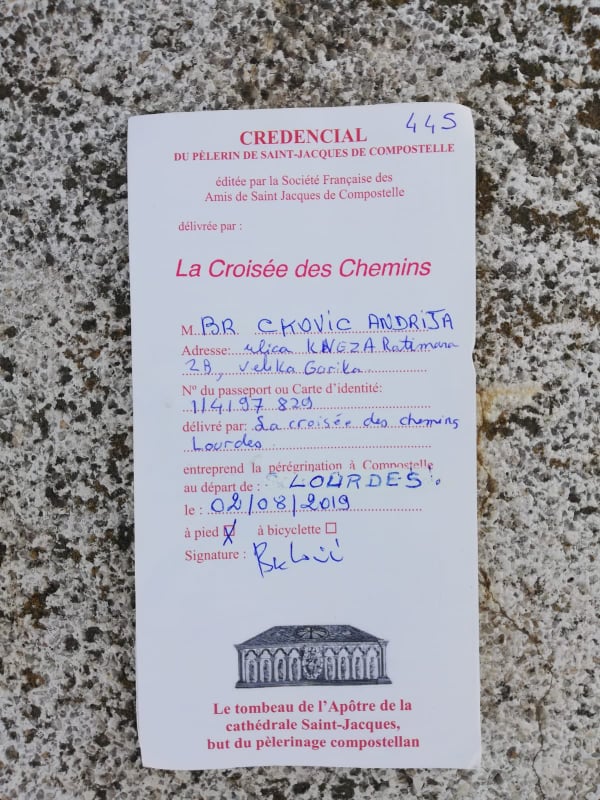 445
CREDENCIAL
DU PÈLERIN DE SAINT-JACQUES DE COMPOSTELLE
éditée par la Société Française des
Amis de Saint Jacques de Compostelle
délivrée par :
La Croisée des Chemins
M. BR CKOVIC ANDRIJA
Adresse: ulica KNEZA Ratimara
2B, Velika Gorika
N° du passeport ou Carte d'identité:
114197 829
délivré par: La croisée des chemins
Lourdes.
entreprend la pérégrination à Compostelle
au départ de : LOURDES.
le : 02/08/2019
à pied à bicyclette
Signature :
Le tombeau de l'Apôtre de la
cathédrale Saint-Jacques,
but du pèlerinage compostellan